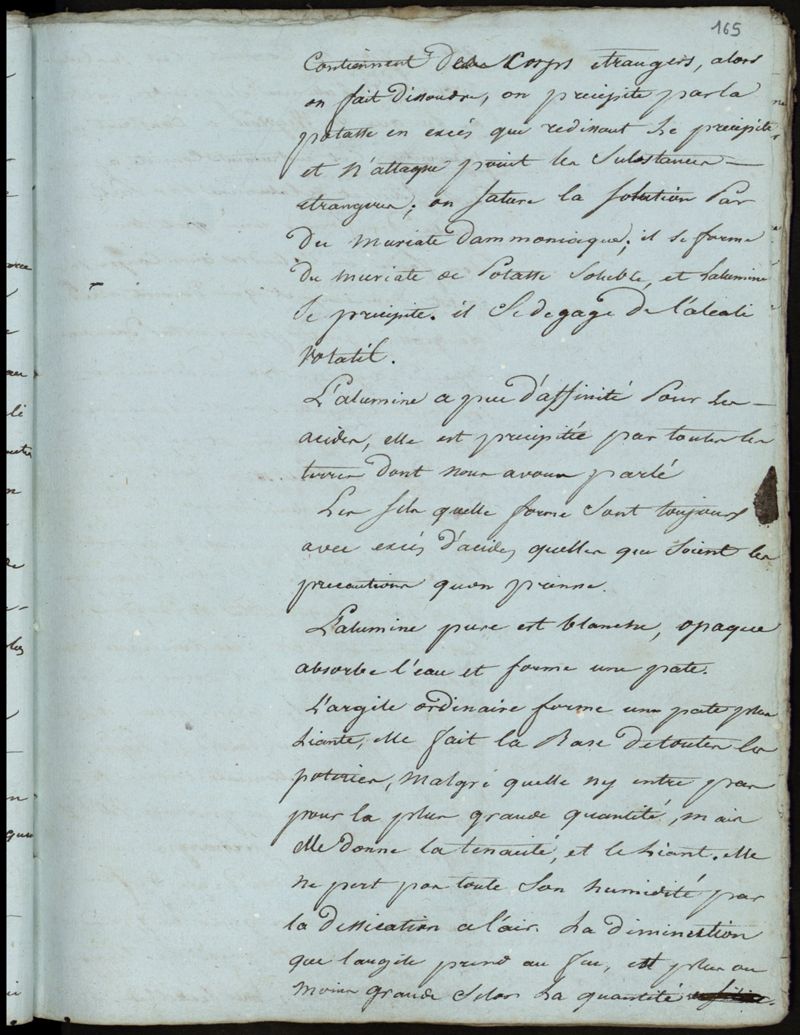 165
Contiennent des Corps etrangers, alors
on fait dissoudre, on precipite par la
potasse en excés que redissout le precipité
et n'attaque point les Substances
etrangeres; on sature la solution Par
du muriate dammoniaque; il se forme
du muriate de Potasse Soluble, et Lalumine
se precipite. il se degage de l'alcali
volatil.
L'alumine a peu d'affinité Pour les
acides, elle est precipitée par toutes les
terres dont nous avons parlé
Les sels quelle forme sont toujours
avec excés d'acide, quelles que soient les
precautions quon prenne.
L'alumine pure est blanche, opaque
absorbe l'eau et forme une pate.
L'argile ordinaire forme une pate plus
Liante, elle fait la Base de toutes les
poteries, malgré quelle ny entre pas
pour la plus grande quantité, mais
elle donne la tenacité, et le Liant. elle
ne pert pas toute son humidité par
la dessication a l'air. La diminution
que l'argile prend au feu, est plus ou
moins grande selon La quantité